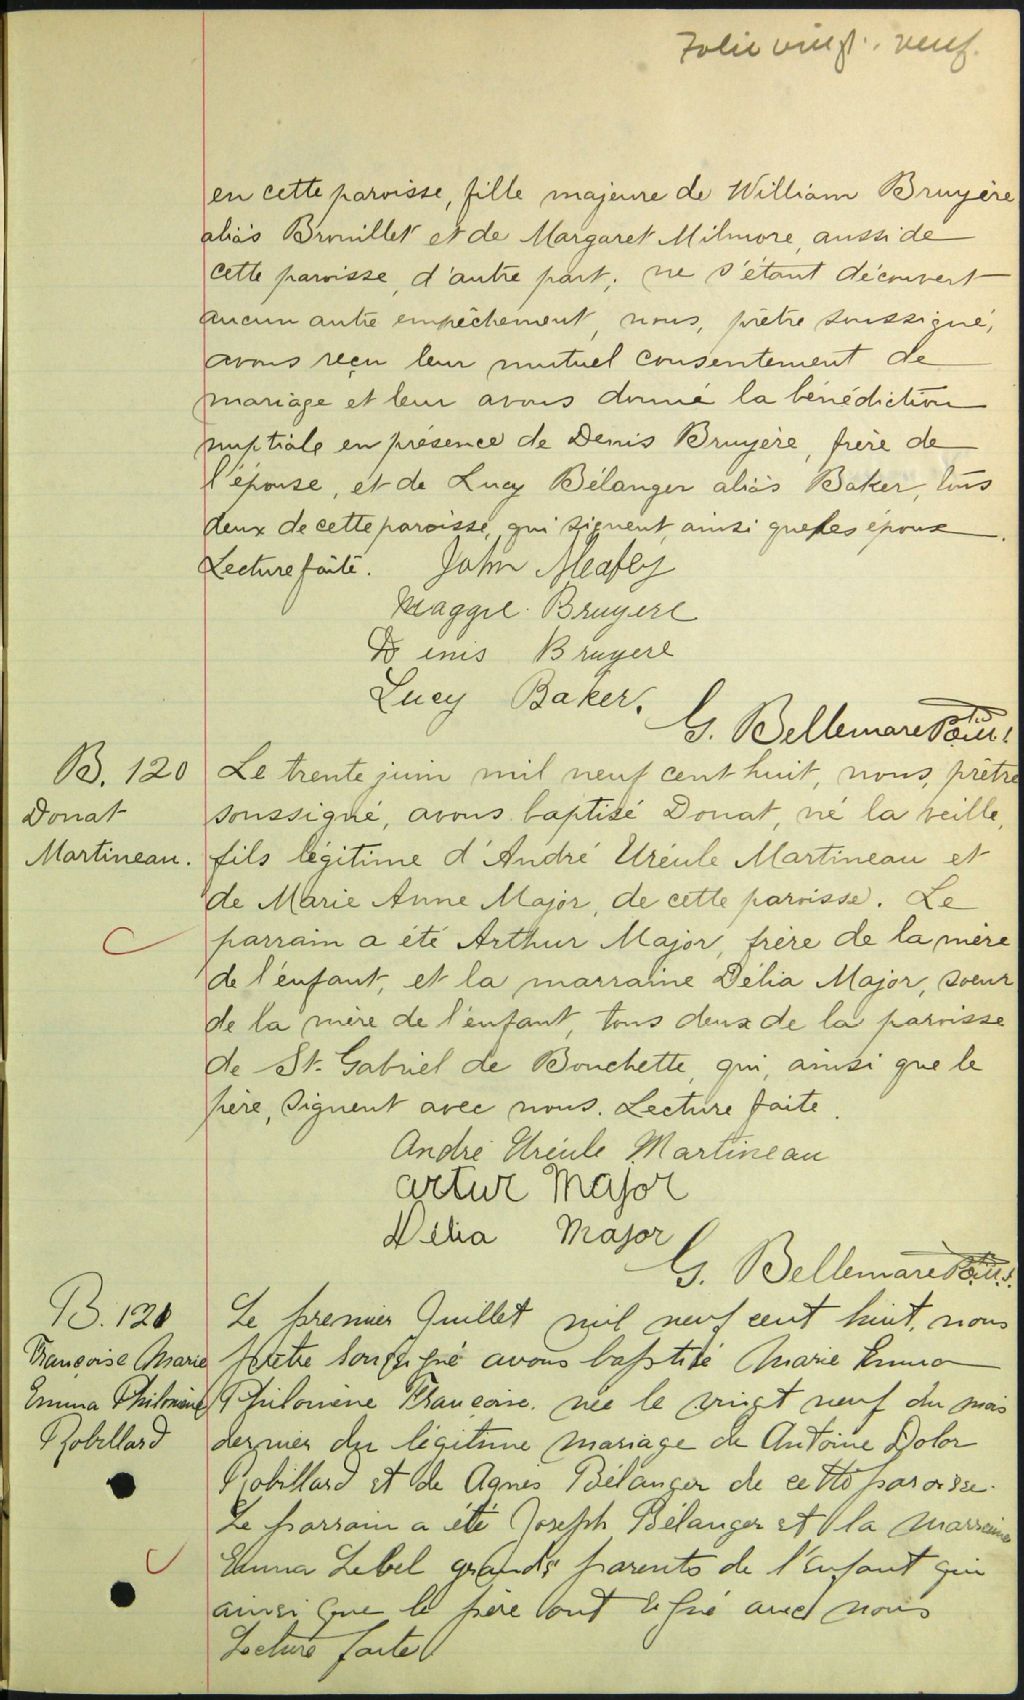 Folio vingt-neuf.
en cette paroisse, fille majeure de William Bruyère
alias Brouillet et de Margaret Milmore, aussi de
cette paroisse, d'autre part; ne s'étant découvert
aucun autre empêchement, nous, prêtre soussigné,
avons reçu leur mutuel consentement de
mariage et leur avons donné la bénédiction
nuptiale en présence de Denis Bruyère, frère de
l'épouse, et de Lucy Bélanger alias Baker, tous
deux de cette paroisse, qui signent, ainsi que les époux.
Lecture faite. John
Maggie Bruyere
Denis Bruyere
Lucy Baker.
G. Bellemare
B. 120
Donat
Martineau.
Le trente juin mil neuf cent huit, nous, prêtre
soussigné, avons baptisé Donat, né la veille,
fils légitime d'André Uréule Martineau et
de Marie Anne Major, de cette paroisse. Le
parrain a été Arthur Major, frère de la mère
de l'enfant, et la marraine Délia Major, soeur
de la mère de l'enfant, tous deux de la paroisse
de St-Gabriel de Bouchette, qui, ainsi que le
père, signent avec nous. Lecture faite.
André Uréule Martineau
artur Major
Délia Major
G. Bellemare
B. 121
Françoise Marie
Emma Philomène
Robillard
Le premier Juillet mil neuf cent huit, nous
prêtre soussigné avons baptisé Marie Emma
Philomène Françoise née le vingt neuf du mois
dernier du légitime mariage de Antoine Dolor
Robillard et de Agnes Bélanger de cette paroisse.
Le parrain a été Joseph Bélanger et la marraine
Emma Lebel grands parents de l'enfant qui
ainsi que le père ont signé avec nous
Lecture faite